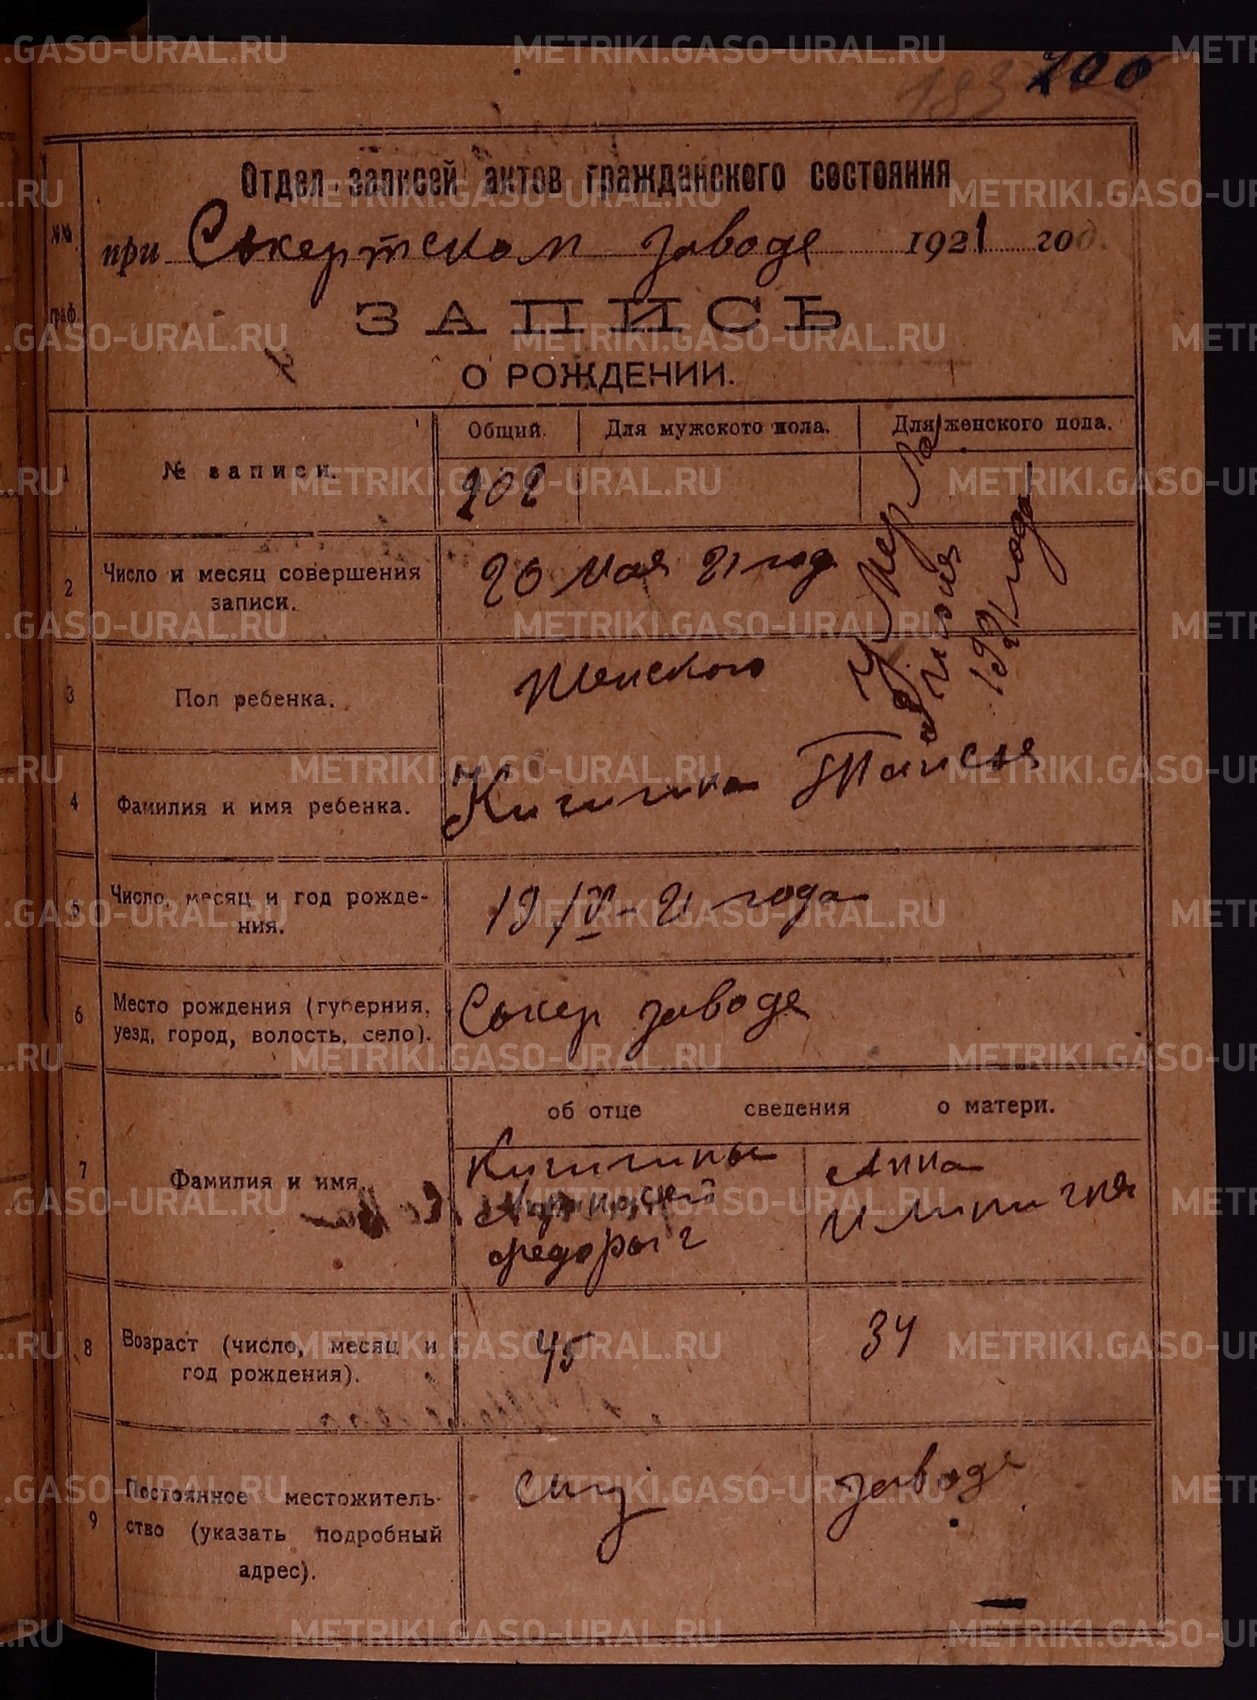 183 200
Отдел записей актов гражданского состояния
№№ граф.
при Сысертском заводе 1921 год.
ЗАПИСЬ
О РОЖДЕНИИ.
Общий. Для мужского пола. Для женского пола.
1 № записи. 202
Умерла
1921 года
2 Число и месяц совершения записи. 20 мая 21 год
3 Пол ребенка. Женского
4 Фамилия и имя ребенка. Таисья
5 Число, месяц и год рождения. 19/V-21 года
6 Место рождения (губерния, уезд, город, волость, село). Сысер заводе
об отце сведения о матери.
7 Фамилия и имя
Анна
8 Возраст (число, месяц и год рождения). 45 34
9 Постоянное местожительство (указать подробный адрес). заводе
METRIKI.GASO-URAL.RU